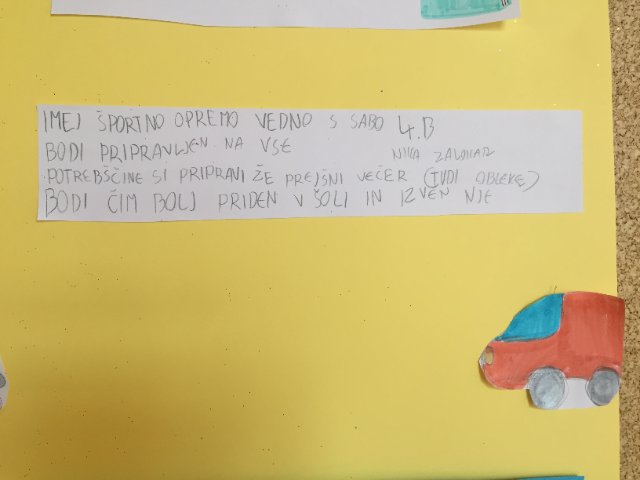 IMEJ ŠPORTNO OPREMO VEDNO S SABO 4.B
BODI PRIPRAVLJEN NA VSE
NIKA
POTREBŠČINE SI PRIPRAVI ŽE PREJŠNI VEČER (TUDI OBLEKE)
BODI ČIM BOLJ PRIDEN V ŠOLI IN IZVEN NJE